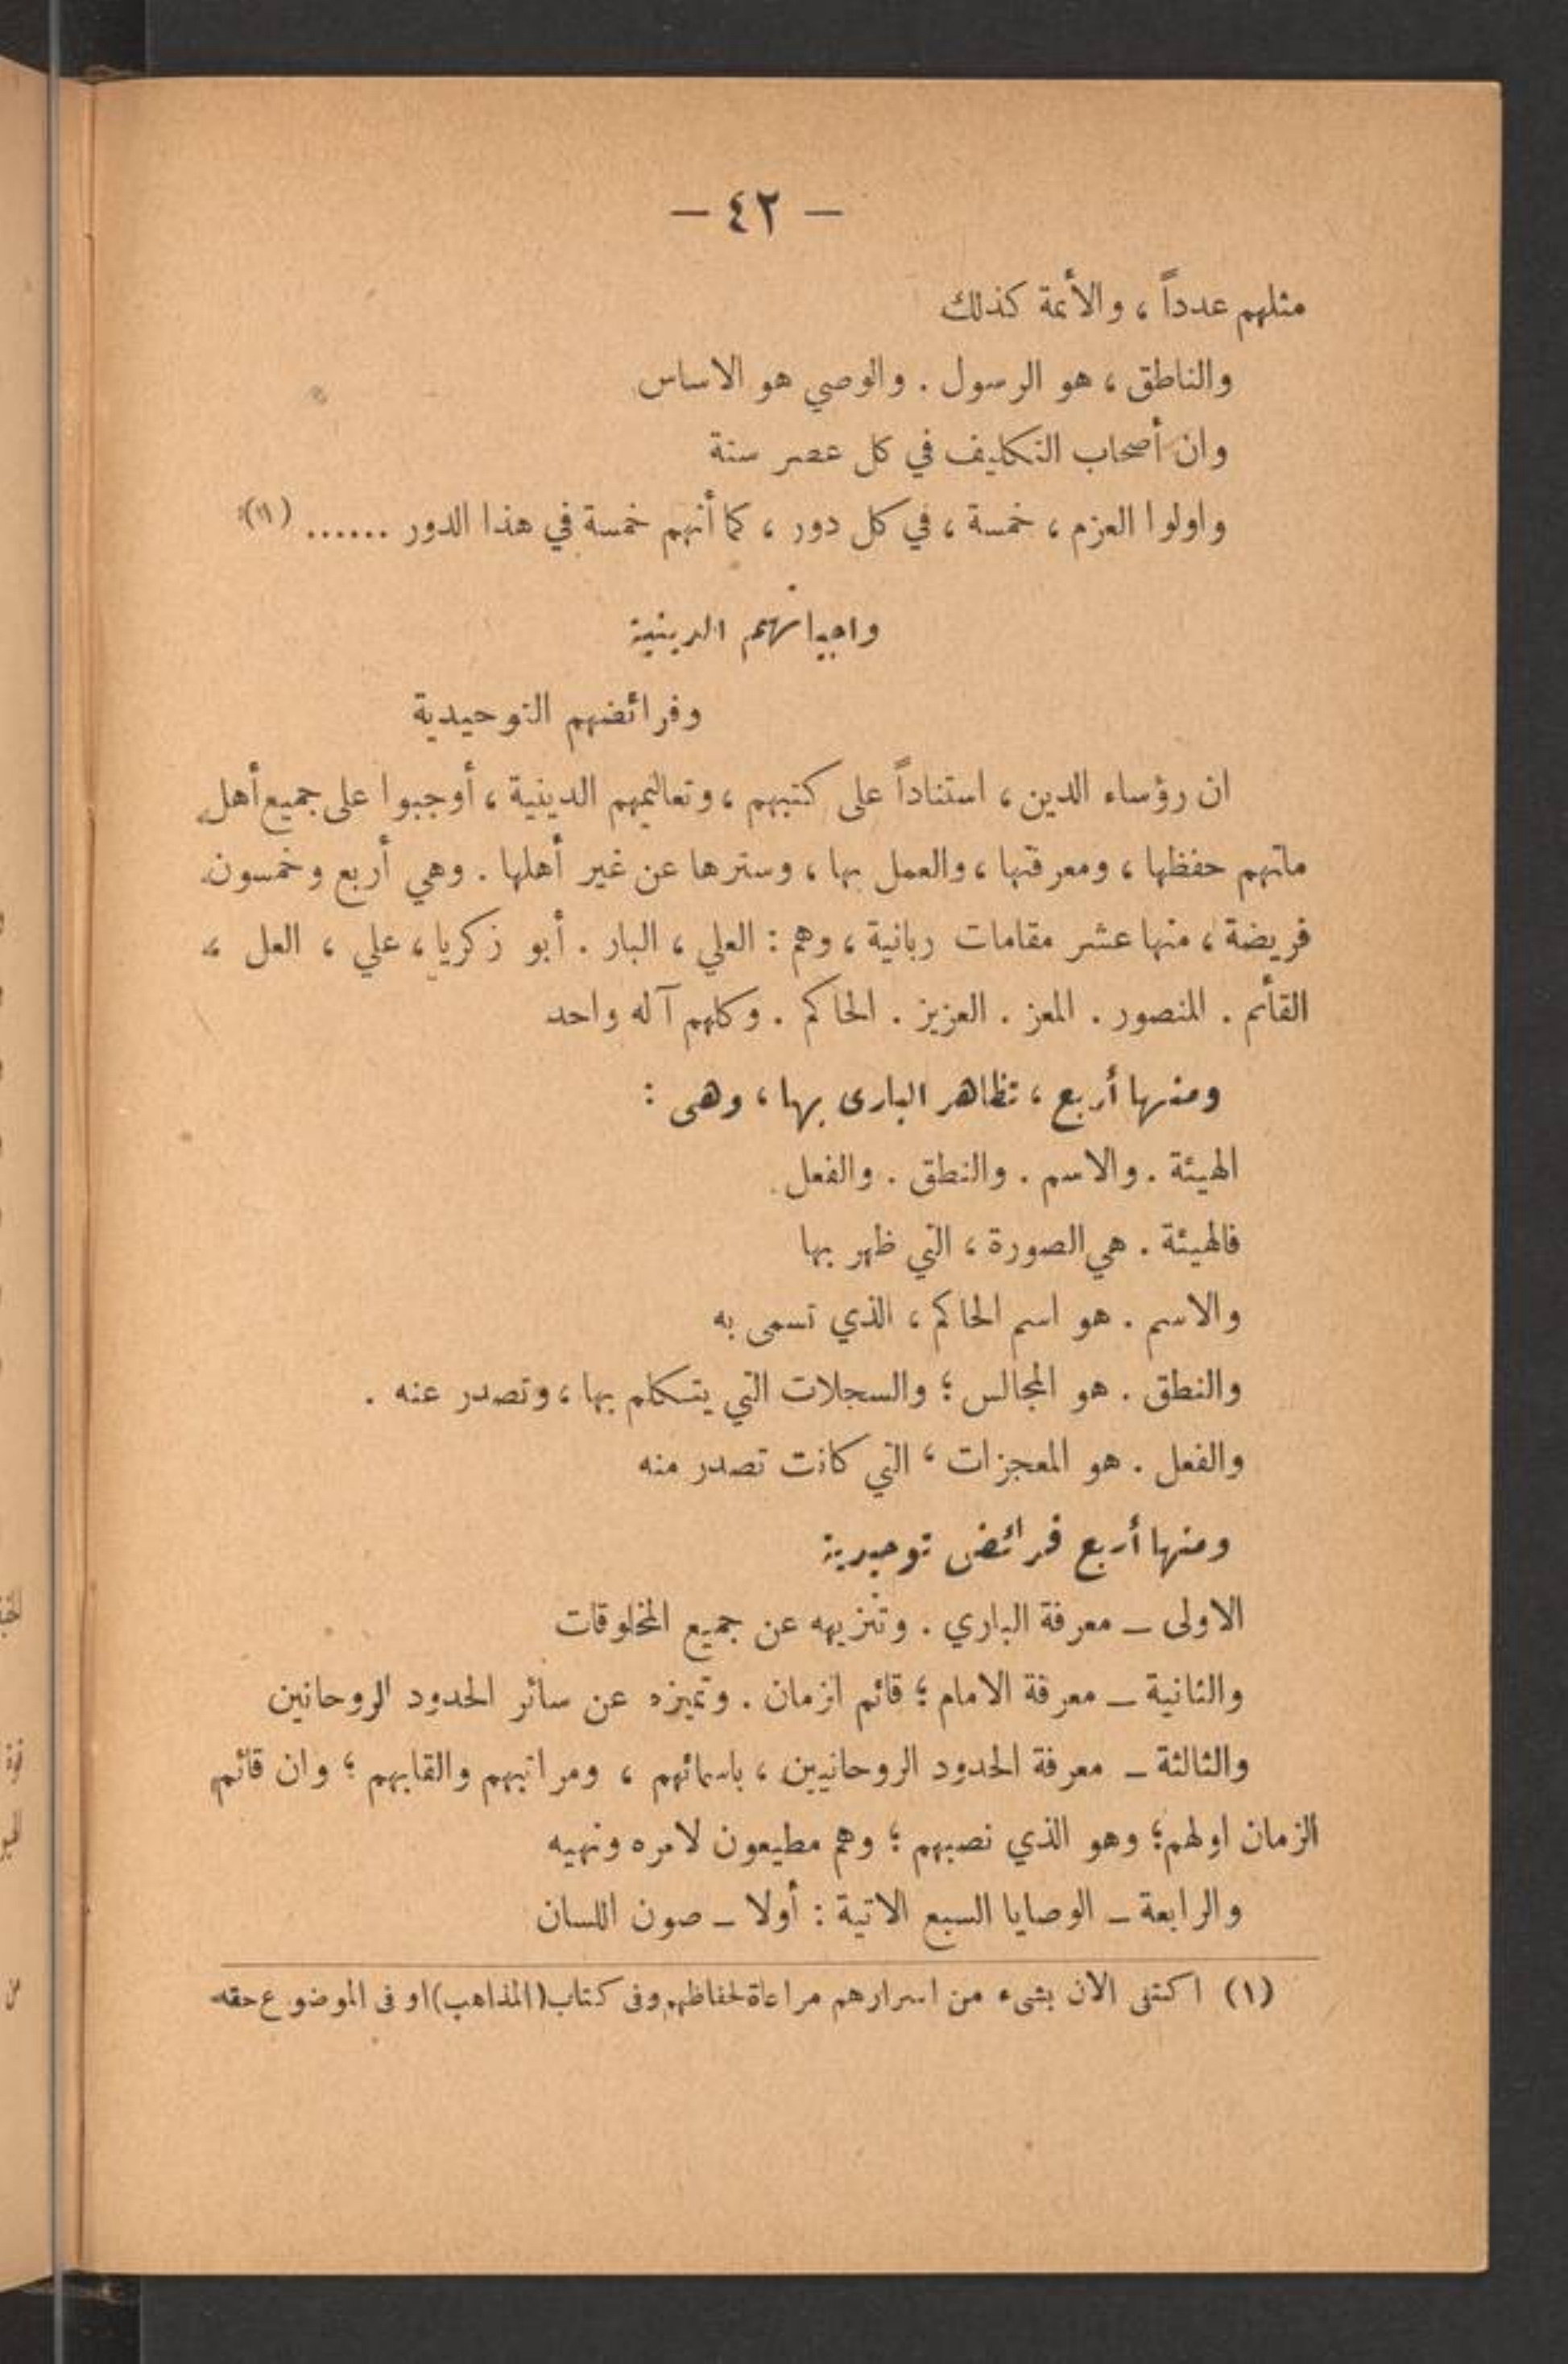 — ٤٢ —
مثلهم عدداً ، والأئمة كذلك
والناطق ، هو الرسول . والوصي هو الاساس
وان أصحاب التكليف في كل عصر ستة
واولوا العزم ، خمسة ، في كل دور ، كما أنهم خمسة في هذا الدور ...... (١)
واجباتهم الدينية
وفرائضهم التوحيدية
ان رؤساء الدين ، استناداً على كتبهم ، وتعاليمهم الدينية ، أوجبوا على جميع أهل
ملتهم حفظها ، ومعرفتها ، والعمل بها ، وسترها عن غير أهلها . وهي أربع وخمسون
فريضة ، منها عشر مقامات ربانية ، وهم : العلي ، البار . أبو زكريا ، علي ، العل ،
القائم . المنصور . المعز . العزيز . الحاكم . وكلهم آله واحد
ومنها أربع ، تظاهر البارى بها ، وهى :
الهيئة . والاسم . والنطق . والفعل .
فالهيئة . هي الصورة ، التي ظهر بها
والاسم . هو اسم الحاكم ، الذي تسمى به
والنطق . هو المجالس ؛ والسجلات التي يتكلم بها ، وتصدر عنه .
والفعل . هو المعجزات ، التي كانت تصدر منه
ومنها أربع فرائض توحيدية
الاولى ـ معرفة الباري . وتنزيهه عن جميع المخلوقات
والثانية ـ معرفة الامام ؛ قائم الزمان . وتميزه عن سائر الحدود الروحانين
والثالثة ـ معرفة الحدود الروحانيين ، باسمائهم ، ومراتبهم والقابهم ؛ وان قائم
الزمان اولهم ؛ وهو الذي نصبهم ؛ وهم مطيعون لامره ونهيه
والرابعة ـ الوصايا السبع الاتية : أولا ـ صون اللسان
(١) اكتفى الان بشىء من اسرارهم مراعاة لحفاظهم وفى كتاب (المذاهب) او فى الموضوع حقه